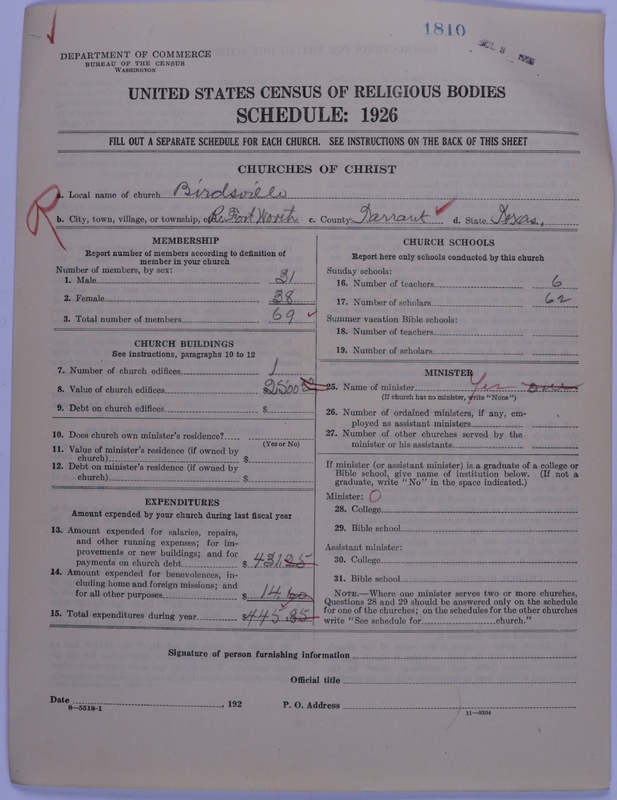 1810
DEPARTMENT OF COMMERCE
BUREAU OF THE CENSUS
WASHINGTON
UNITED STATES CENSUS OF RELIGIOUS BODIES
SCHEDULE: 1926
FILL OUT A SEPARATE SCHEDULE FOR EACH CHURCH. SEE INSTRUCTIONS ON THE BACK OF THIS SHEET
CHURCHES OF CHRIST
a. Local name of church Birdsville
R
b. City, town, village, or township, etc. R. Fort Worth c. County Tarrant d. State Texas,
MEMBERSHIP
Report number of members according to definition of
member in your church
Number of members, by sex:
1. Male 31
2. Female 38
3. Total number of members 69
CHURCH BUILDINGS
See instructions, paragraphs 10 to 12
7. Number of church edifices 1
8. Value of church edifices $2500
9. Debt on church edifices $
10. Does church own minister's residence?
(Yes or No)
11. Value of minister's residence (if owned by
church) $
12. Debt on minister's residence (if owned by
church) $
EXPENDITURES
Amount expended by your church during last fiscal year
13. Amount expended for salaries, repairs,
and other running expenses; for im-
provements or new buildings; and for
payments on church debt $431.25
14. Amount expended for benevolences, in-
cluding home and foreign missions; and
for all other purposes $14.60
15. Total expenditures during year $445.85
CHURCH SCHOOLS
Report here only schools conducted by this church
Sunday schools:
16. Number of teachers 6
17. Number of scholars 62
Summer vacation Bible schools:
18. Number of teachers
19. Number of scholars
MINISTER
25. Name of minister Yes
(If church has no minister, write "None")
26. Number of ordained ministers, if any, em-
ployed as assistant ministers
27. Number of other churches served by the
minister or his assistants
If minister (or assistant minister) is a graduate of a college or
Bible school, give name of institution below. (If not a
graduate, write "No" in the space indicated.)
Minister: O
28. College
29. Bible school
Assistant minister:
30. College
31. Bible school
NOTE.—Where one minister serves two or more churches,
Questions 28 and 29 should be answered only on the schedule
for one of the churches; on the schedules for the other churches
write "See schedule for church."
Signature of person furnishing information
Official title
Date , 192 P. O. Address
8—5518-1
11—9204